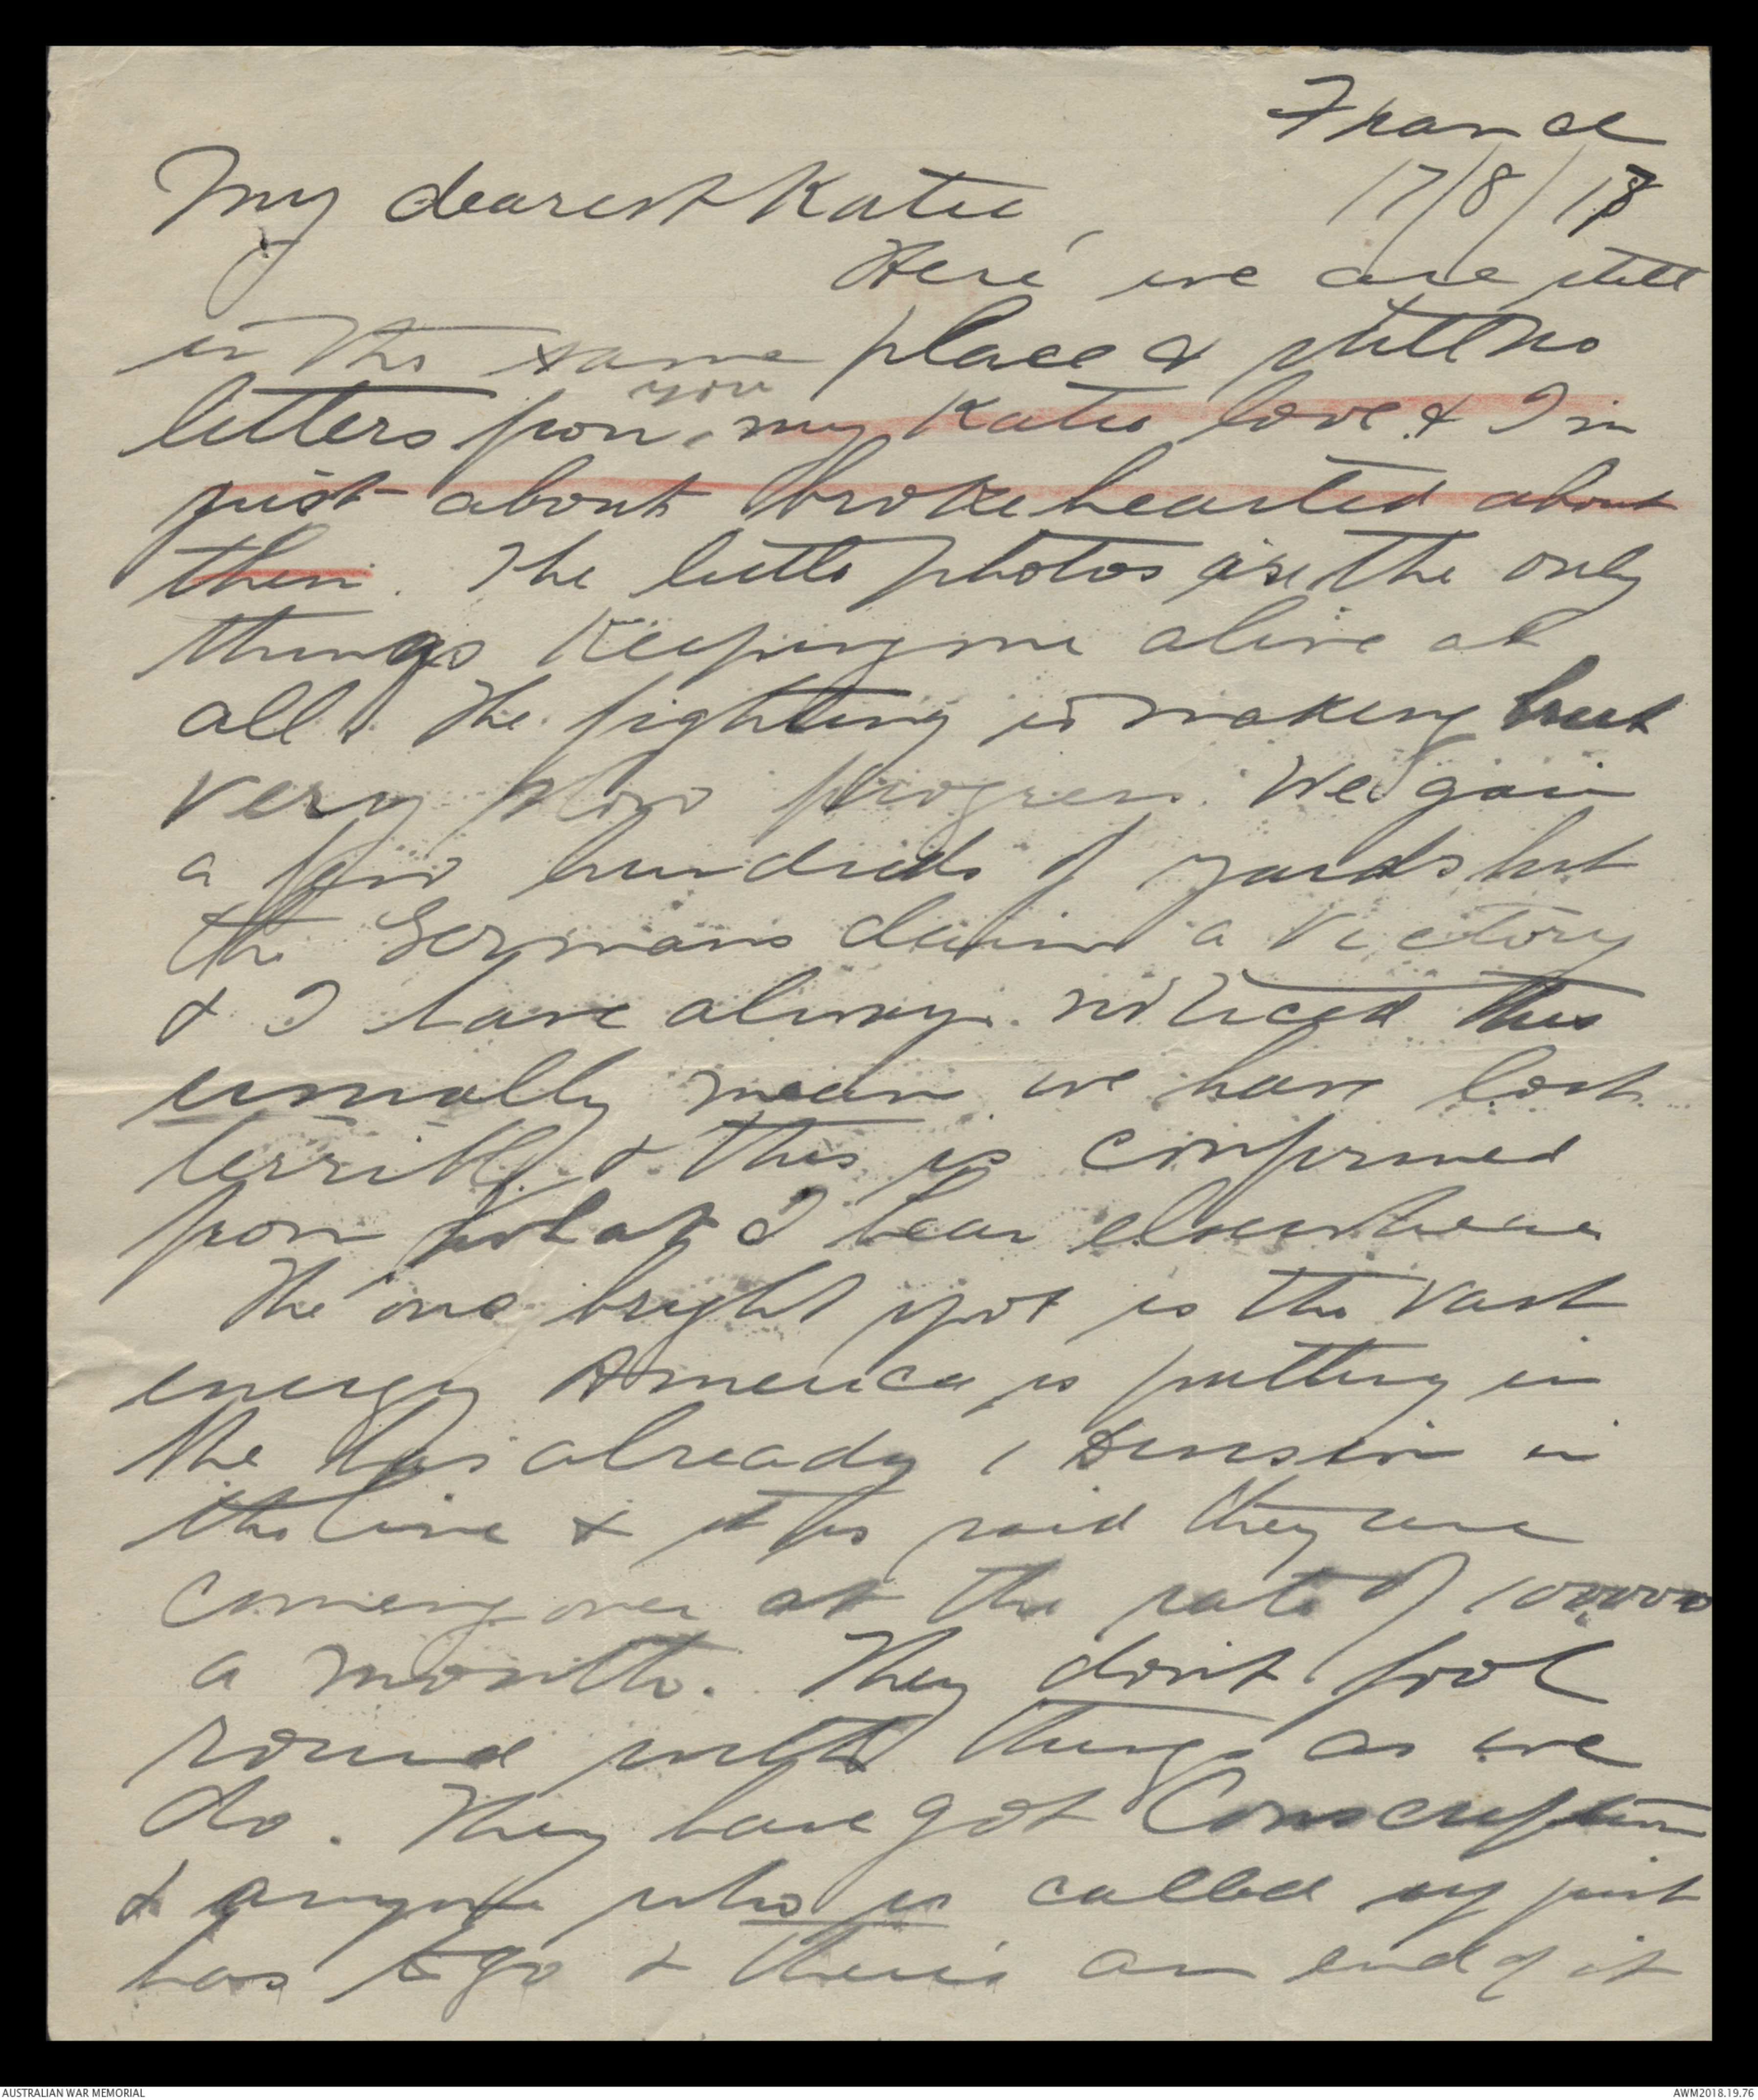 France
17/8/18
My dearest Katie,
Here we are still
in the same place & still no
letters from you my Katie love & I'm
just about brokehearted about
them. The little photos are the only
things keeping me alive at
all. The fighting is making but
very slow progress. We gain
a few hundreds of yards but
the Germans claim a victory
& I have always noticed this
usually means we have lost
terribly & this is confirmed
from what I hear elsewhere
The one bright spot is the vast
energy America is putting in
She has already 1 Division in
the line & it is said they are
coming over at the rate of 100,000
a month. They don't fool
round with things as we
do. They have got Conscription
& anyone who is called up just
has to go & there's an end of it
AUSTRALIAN WAR MEMORIAL
AWM2018.19.76